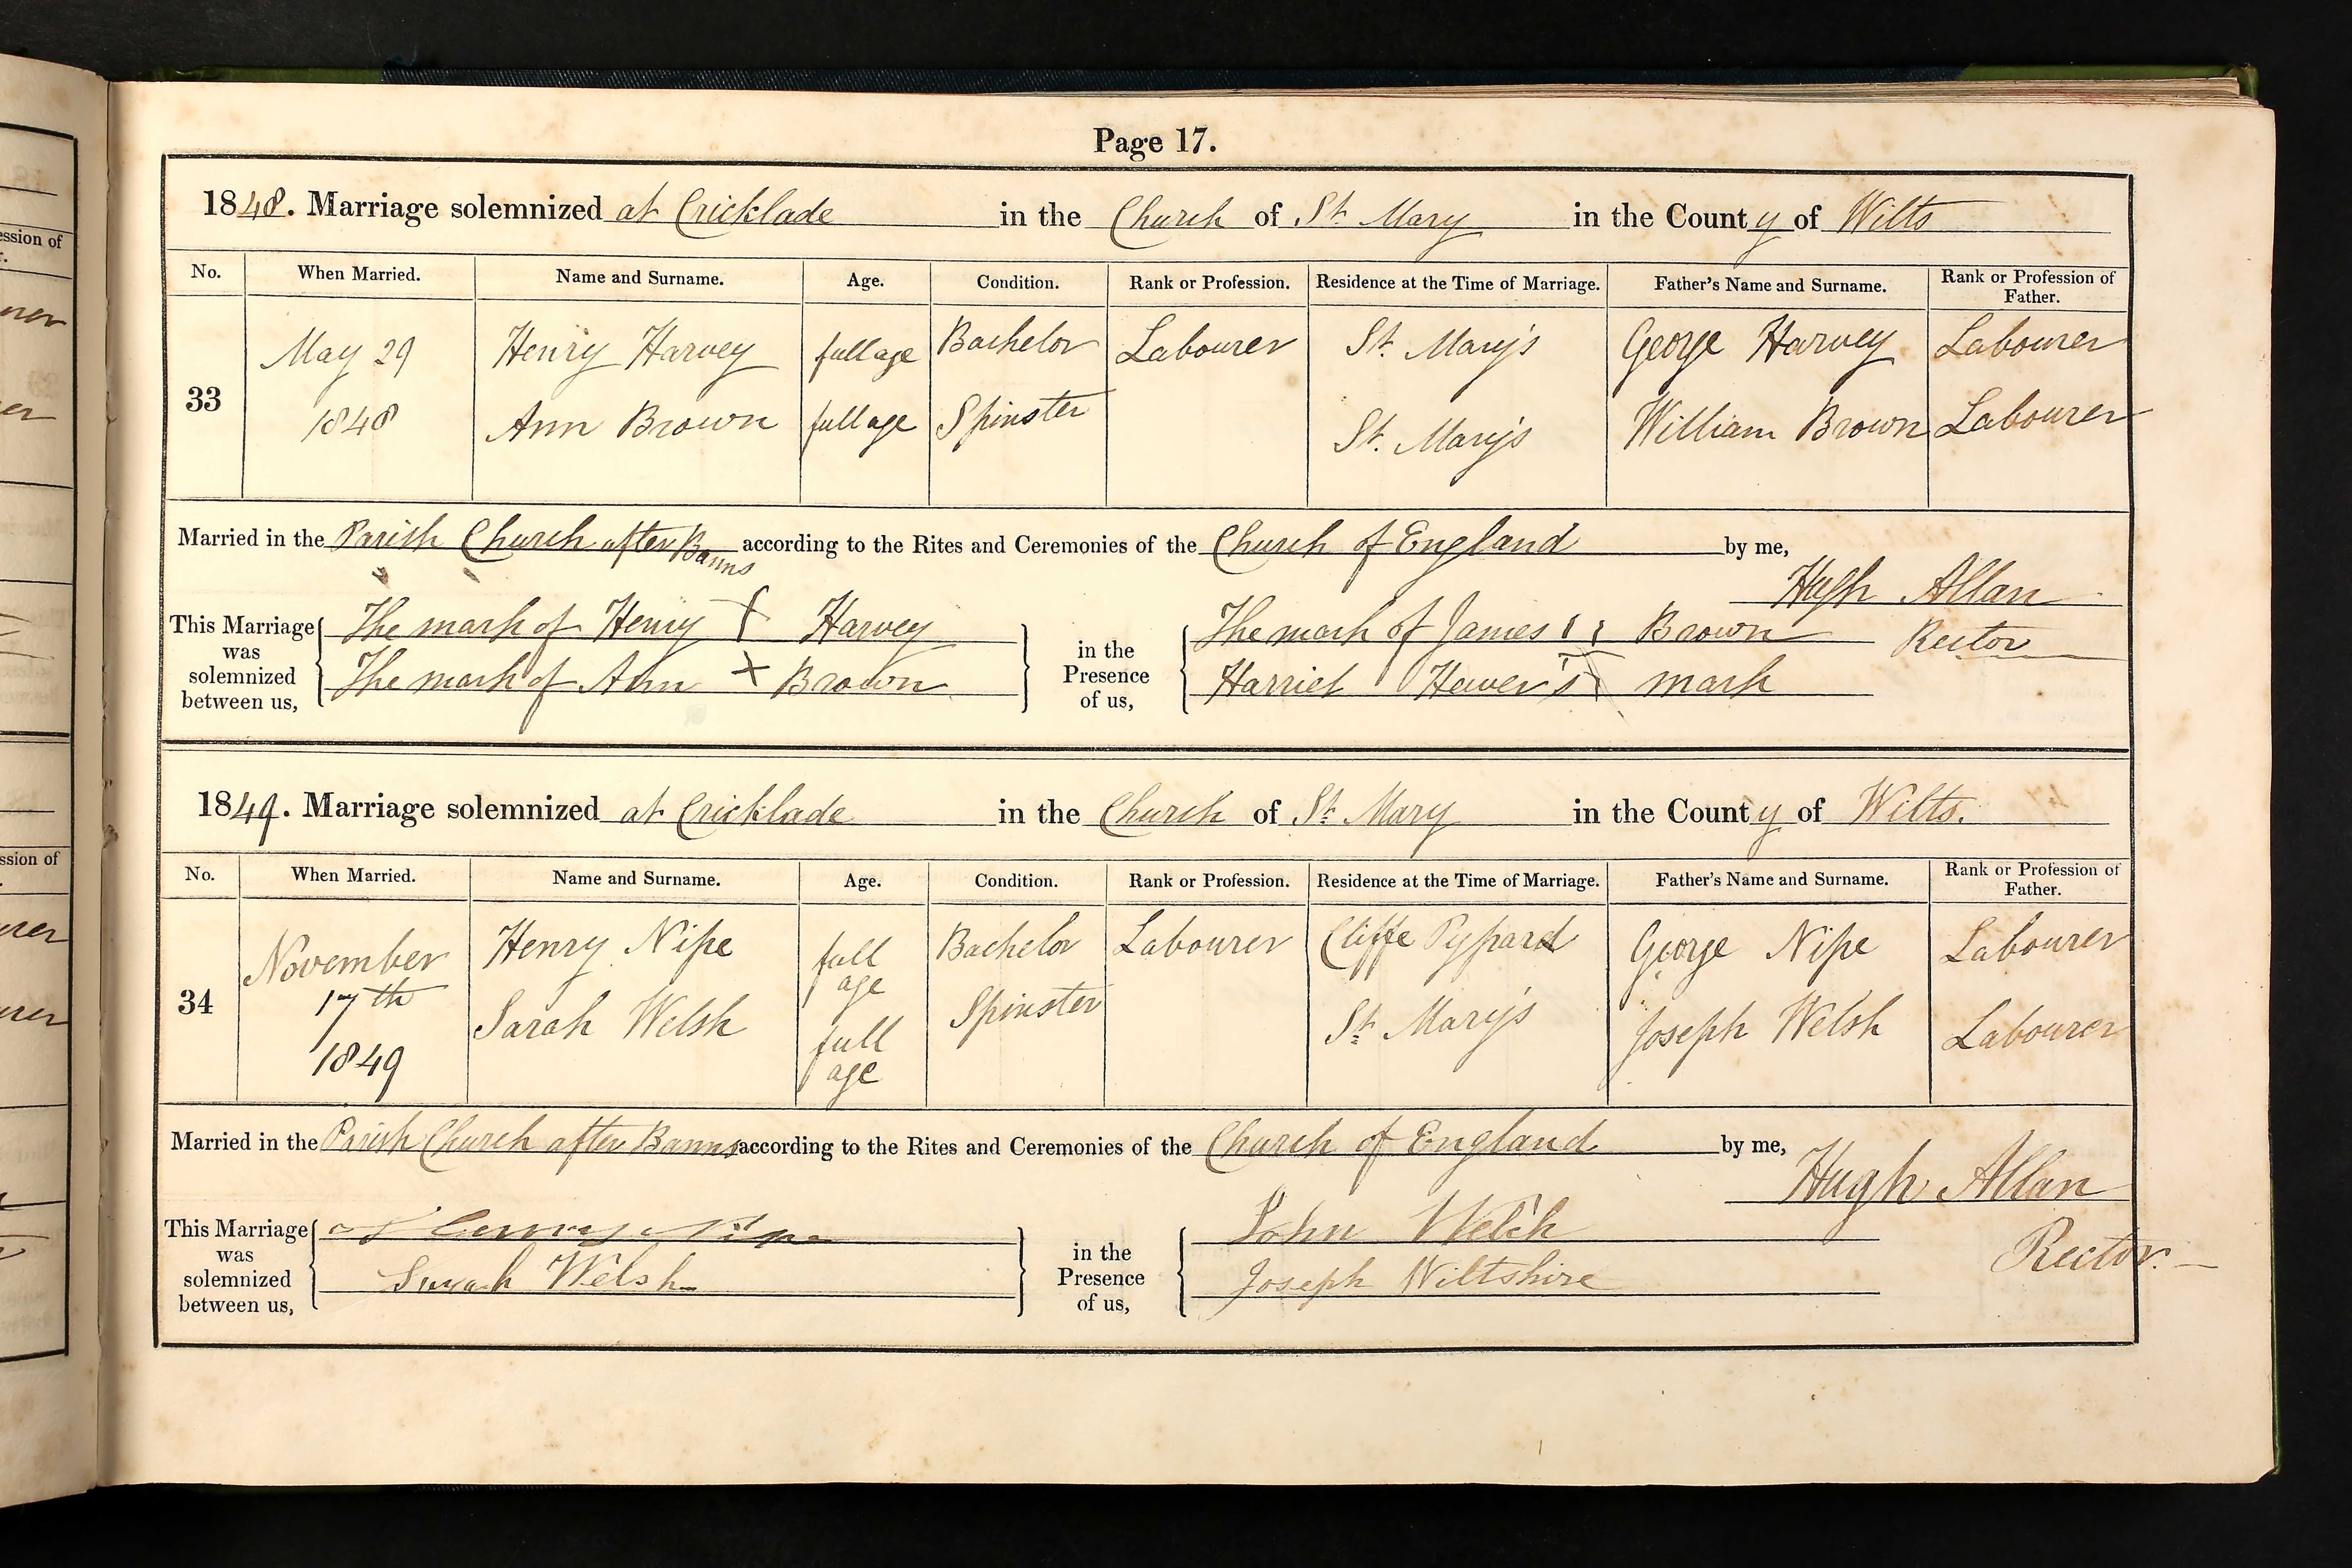 Page 17.
1848. Marriage solemnized at Cricklade in the Church of St. Mary in the County of Wilts
No. When Married. Name and Surname. Age. Condition. Rank or Profession. Residence at the Time of Marriage. Father's Name and Surname. Rank or Profession of Father.
33 May 29 Henry Harvey full age Bachelor Labourer St. Mary's George Harvey Labourer
1848 Ann Brown full age Spinster St. Mary's William Brown Labourer
Married in the Parish Church after Banns according to the Rites and Ceremonies of the Church of England by me,
Hugh Allan
Rector
This Marriage was solemnized between us, The mark of Henry X Harvey
The mark of Ann X Brown
in the Presence of us, The mark of James Brown
Harriet Hewer's mark
1849. Marriage solemnized at Cricklade in the Church of St. Mary in the County of Wilts.
No. When Married. Name and Surname. Age. Condition. Rank or Profession. Residence at the Time of Marriage. Father's Name and Surname. Rank or Profession of Father.
34 November 17th 1849 Henry Nipe full age Bachelor Labourer Cliffe Pypard George Nipe Labourer
Sarah Welsh full age Spinster St. Mary's Joseph Welsh Labourer
Married in the Parish Church after Banns according to the Rites and Ceremonies of the Church of England by me,
Hugh Allan
Rector.
This Marriage was solemnized between us, Henry Nipe
Sarah Welsh
in the Presence of us, John Welch
Joseph Wiltshire